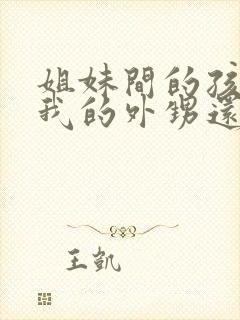 姐妹間的孩
我的外甥還
王凱